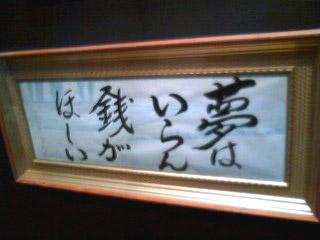 夢は
いらん
銭が
ほしい